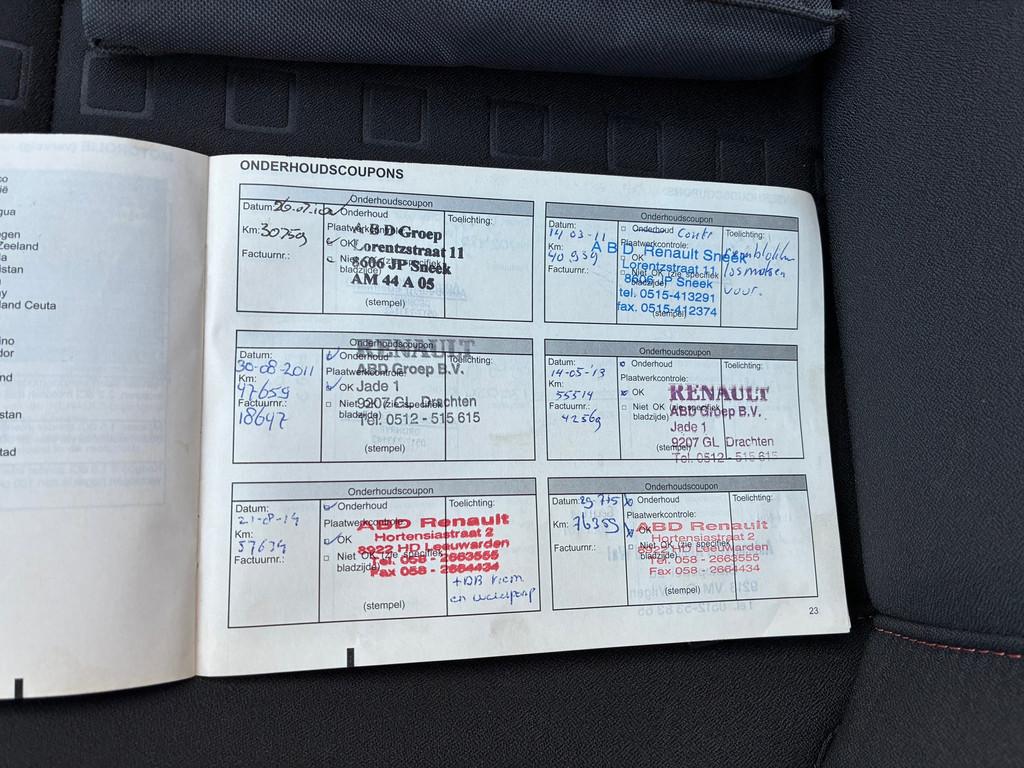 ONDERHOUDSCOUPONS
Onderhoudscoupon
Datum:
Onderhoud
Toelichting:
Km: 30759
Plaatwerkcontrole:
OK
Factuurnr.:
Niet OK (zie specifiek
bladzijde)
A B D Groep
Lorentzstraat 11
8606 JP Sneek
AM 44 A 05
(stempel)
Onderhoudscoupon
Datum:
14 03-11
Onderhoud
Toelichting:
Km:
40 959
Plaatwerkcontrole:
OK
Factuurnr.:
Niet OK (zie specifiek
bladzijde)
A B D Renault Sneek
Lorentzstraat 11
8606 JP Sneek
tel. 0515-413291
fax. 0515-412374
(stempel)
losmaken
voor.
Onderhoudscoupon
Datum:
30-08-2011
Onderhoud
Toelichting:
Km:
47659
Plaatwerkcontrole:
OK
Factuurnr.:
18647
Niet OK (zie specifiek
bladzijde)
RENAULT
ABD Groep B.V.
Jade 1
9207 GL Drachten
Tel. 0512 - 515 615
(stempel)
Onderhoudscoupon
Datum:
14-05-'13
Onderhoud
Toelichting:
Km:
55514
Plaatwerkcontrole:
OK
Factuurnr.:
42569
Niet OK (zie specifiek
bladzijde)
RENAULT
ABD Groep B.V.
Jade 1
9207 GL Drachten
Tel. 0512 - 515 615
(stempel)
Onderhoudscoupon
Datum:
21-08-14
Onderhoud
Toelichting:
Km:
57639
Plaatwerkcontrole
OK
Factuurnr.:
Niet OK (zie specifiek
bladzijde)
ABD Renault
Hortensiastraat 2
8922 HD Leeuwarden
Tel. 058 - 2663555
Fax 058 - 2664434
+ DB riem
en waterpomp
(stempel)
Onderhoudscoupon
Datum: 29-7-15
Onderhoud
Toelichting:
Km: 76359
Plaatwerkcontrole:
OK
Factuurnr.:
Niet OK (zie specifiek
bladzijde)
ABD Renault
Hortensiastraat 2
8922 HD Leeuwarden
Tel. 058 - 2663555
Fax 058 - 2664434
(stempel)
23